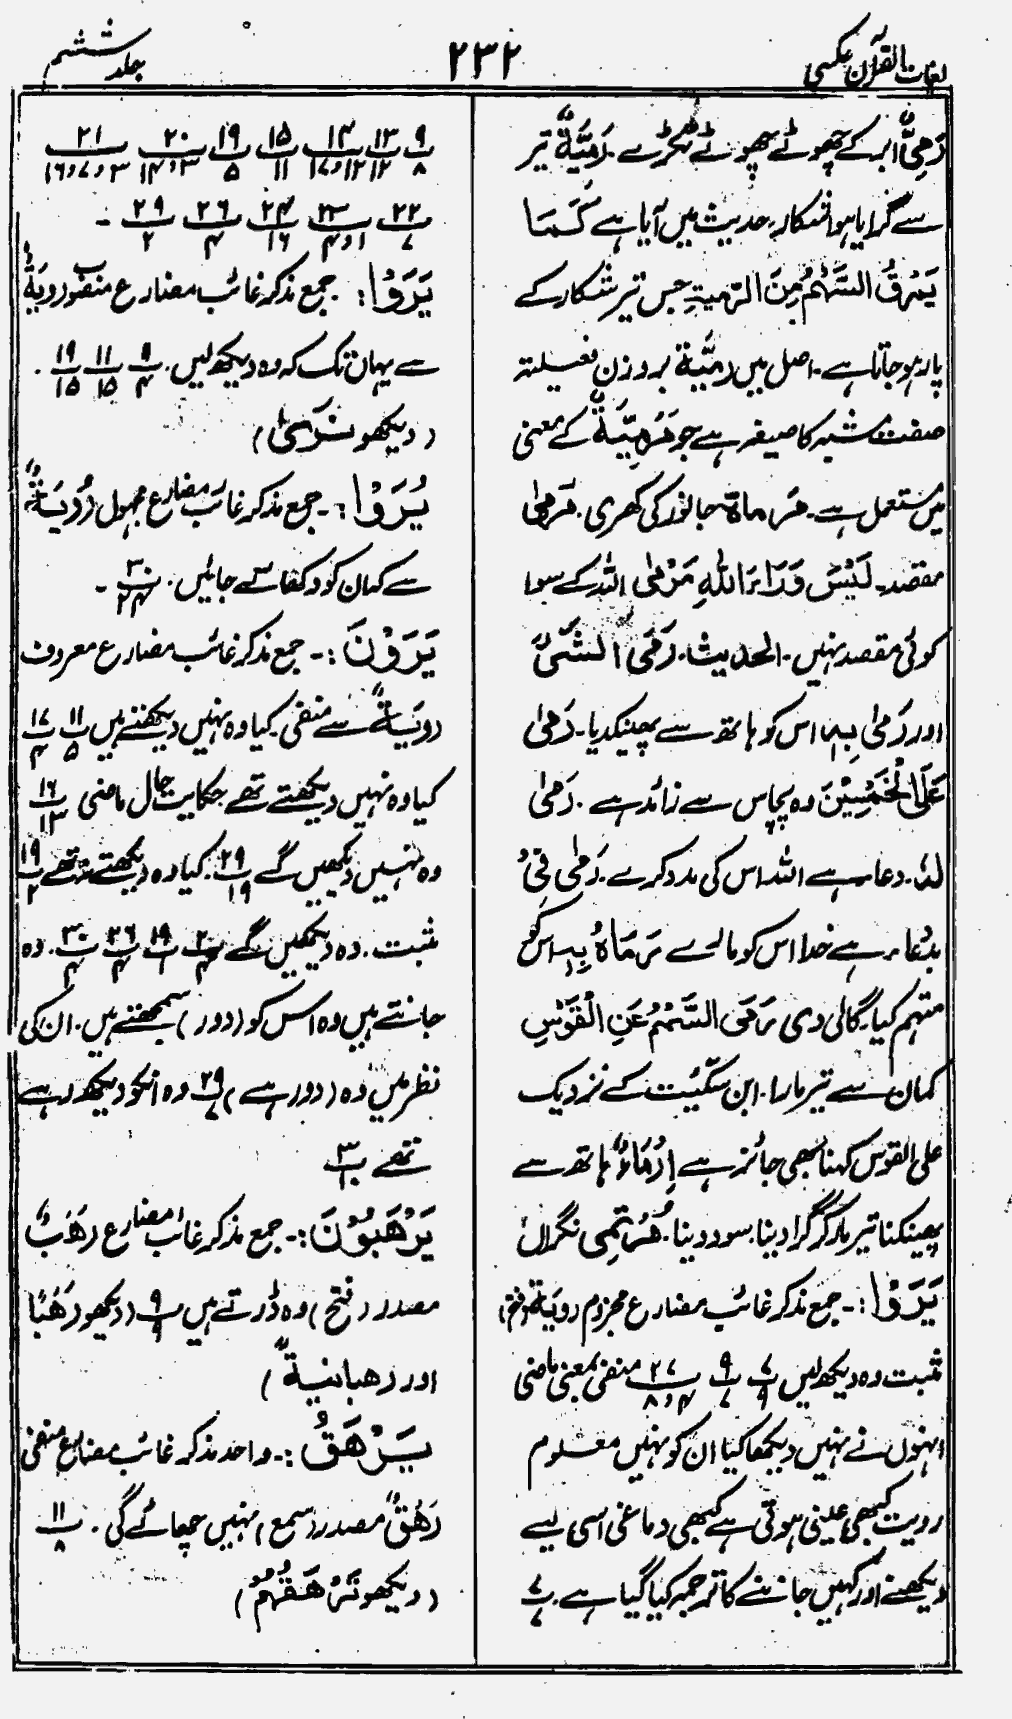 لغات القرآن عکسی
۲۳۲
جلد ششم
رَمِیٌّ ابر کے چھوٹے چھوٹے ٹکڑے۔ رَمِیَّةٌ تیر
سے گرایا ہوا شکار۔ حدیث میں آیا ہے کَمَا
یَمْرُقُ السَّهْمُ مِنَ الرَّمِیةِ جس تیر شکار کے
پار ہو جاتا ہے۔ اصل میں رمِیَّة بروزن فعیلة
صفت مشبہ کا صیغہ ہے جو مَرْمِیَّةٌ کے معنی
میں مستعمل ہے۔ مَرماة جانور کی کھری۔ مَرمیٰ
مقصد۔ لَیْسَ وَرَاءَ اللّٰهِ مَرْمیٰ اللہ کے سوا
کوئی مقصد نہیں۔ الحدیث۔ رَمَی الشَّیَٔ
اور رَمیٰ بِہٖ اس کو ہاتھ سے پھینکدیا۔ رَمیٰ
عَلَی الْخَمْسِیْنَ وہ پچاس سے زائد ہے۔ رَمیٰ
لہٗ۔ دعا ہے اللہ اس کی مدد کرے۔ رَمیٰ فِی
بدعا ہے خدا اس کو مارے رَمَاہُ بِہٖ اس کو
متہم کیا۔ گالی دی رَمَی السَّهْمُ عَنِ الْقَوْسِ
کمان سے تیر مارا۔ ابن سکّیت کے نزدیک
علی القوس کہنا بھی جائز ہے اِرْمَاءٌ ہاتھ سے
پھینکنا تیر مار کر گرا دینا۔ سود دینا۔ مُرتَمِی نگراں
یَرَوْا :۔ جمع مذکر غائب مضارع مجزوم رویَة (فتح)
ثبت وہ دیکھ لیں ۷/۹ ۹/۷ ۲۷/۴،۸ منفی بمعنی ماضی
انہوں نے نہیں دیکھا کیا ان کو نہیں معلوم
رویت کبھی عینی ہوتی ہے کبھی دماغی اسی لیے
دیکھنے اور کہیں جاننے کا ترجمہ کیا گیا ہے۔ ۷/۷
۹/۸ ۱۳/۱۲ ۱۴/۱۲،۱۷ ۱۵/۱۱ ۱۹/۵ ۲۰/۳،۱۴ ۲۱/۳،۷،۱۶
۲۲/۷ ۲۳/۱،۴ ۲۴/۱۶ ۲۶/۴ ۲۹/۲ ۔
یَرَوُا : جمع مذکر غائب مضارع منصوب رویَةٌ
سے یہاں تک کہ وہ دیکھ لیں۔ ۹/۴ ۱۱/۱۵ ۱۹/۱۵ ۔
(دیکھو نَریٰ)
یُرَوْا :۔ جمع مذکر غائب مضارع مجہول (رُویَةٌ)
سے کہ ان کو دکھائے جائیں۔ ۳۰/۲۴ ۔
یَرَوْنَ :۔ جمع مذکر غائب مضارع معروف
رویَةٌ سے منفی۔ کیا وہ نہیں دیکھتے ہیں ۱۱/۵ ۱۷/۴
کیا وہ نہیں دیکھتے تھے حکایت حال ماضی ۱۶/۱۳
وہ نہیں دیکھیں گے ۲۹/۱۹۔ کیا وہ دیکھتے نہ تھے ۱۹/۲
ثبت۔ وہ دیکھیں گے ۲/۴ ۱۹/۱ ۲۶/۴ ۳۰/۴۔ وہ
جانتے ہیں وہ اس کو (دور) سمجھتے ہیں۔ ان کی
نظر میں وہ (دور ہے) ۲۹/۷ وہ انکو دیکھ رہے
تھے ۳/۱۰
یَرْهَبُوْنَ :۔ جمع مذکر غائب مضارع رَهَبٌ
مصدر (فتح) وہ ڈرتے ہیں ۹/۹ (دیکھو رَهَبًا
اور رهبانیةٌ)
یَرْهَقُ :۔ واحد مذکر غائب مضارع منفی
رَهْقٌ مصدر (سمع) نہیں چھائے گی۔ ۱۱/۸
(دیکھو تَرْهَقُهُمْ)